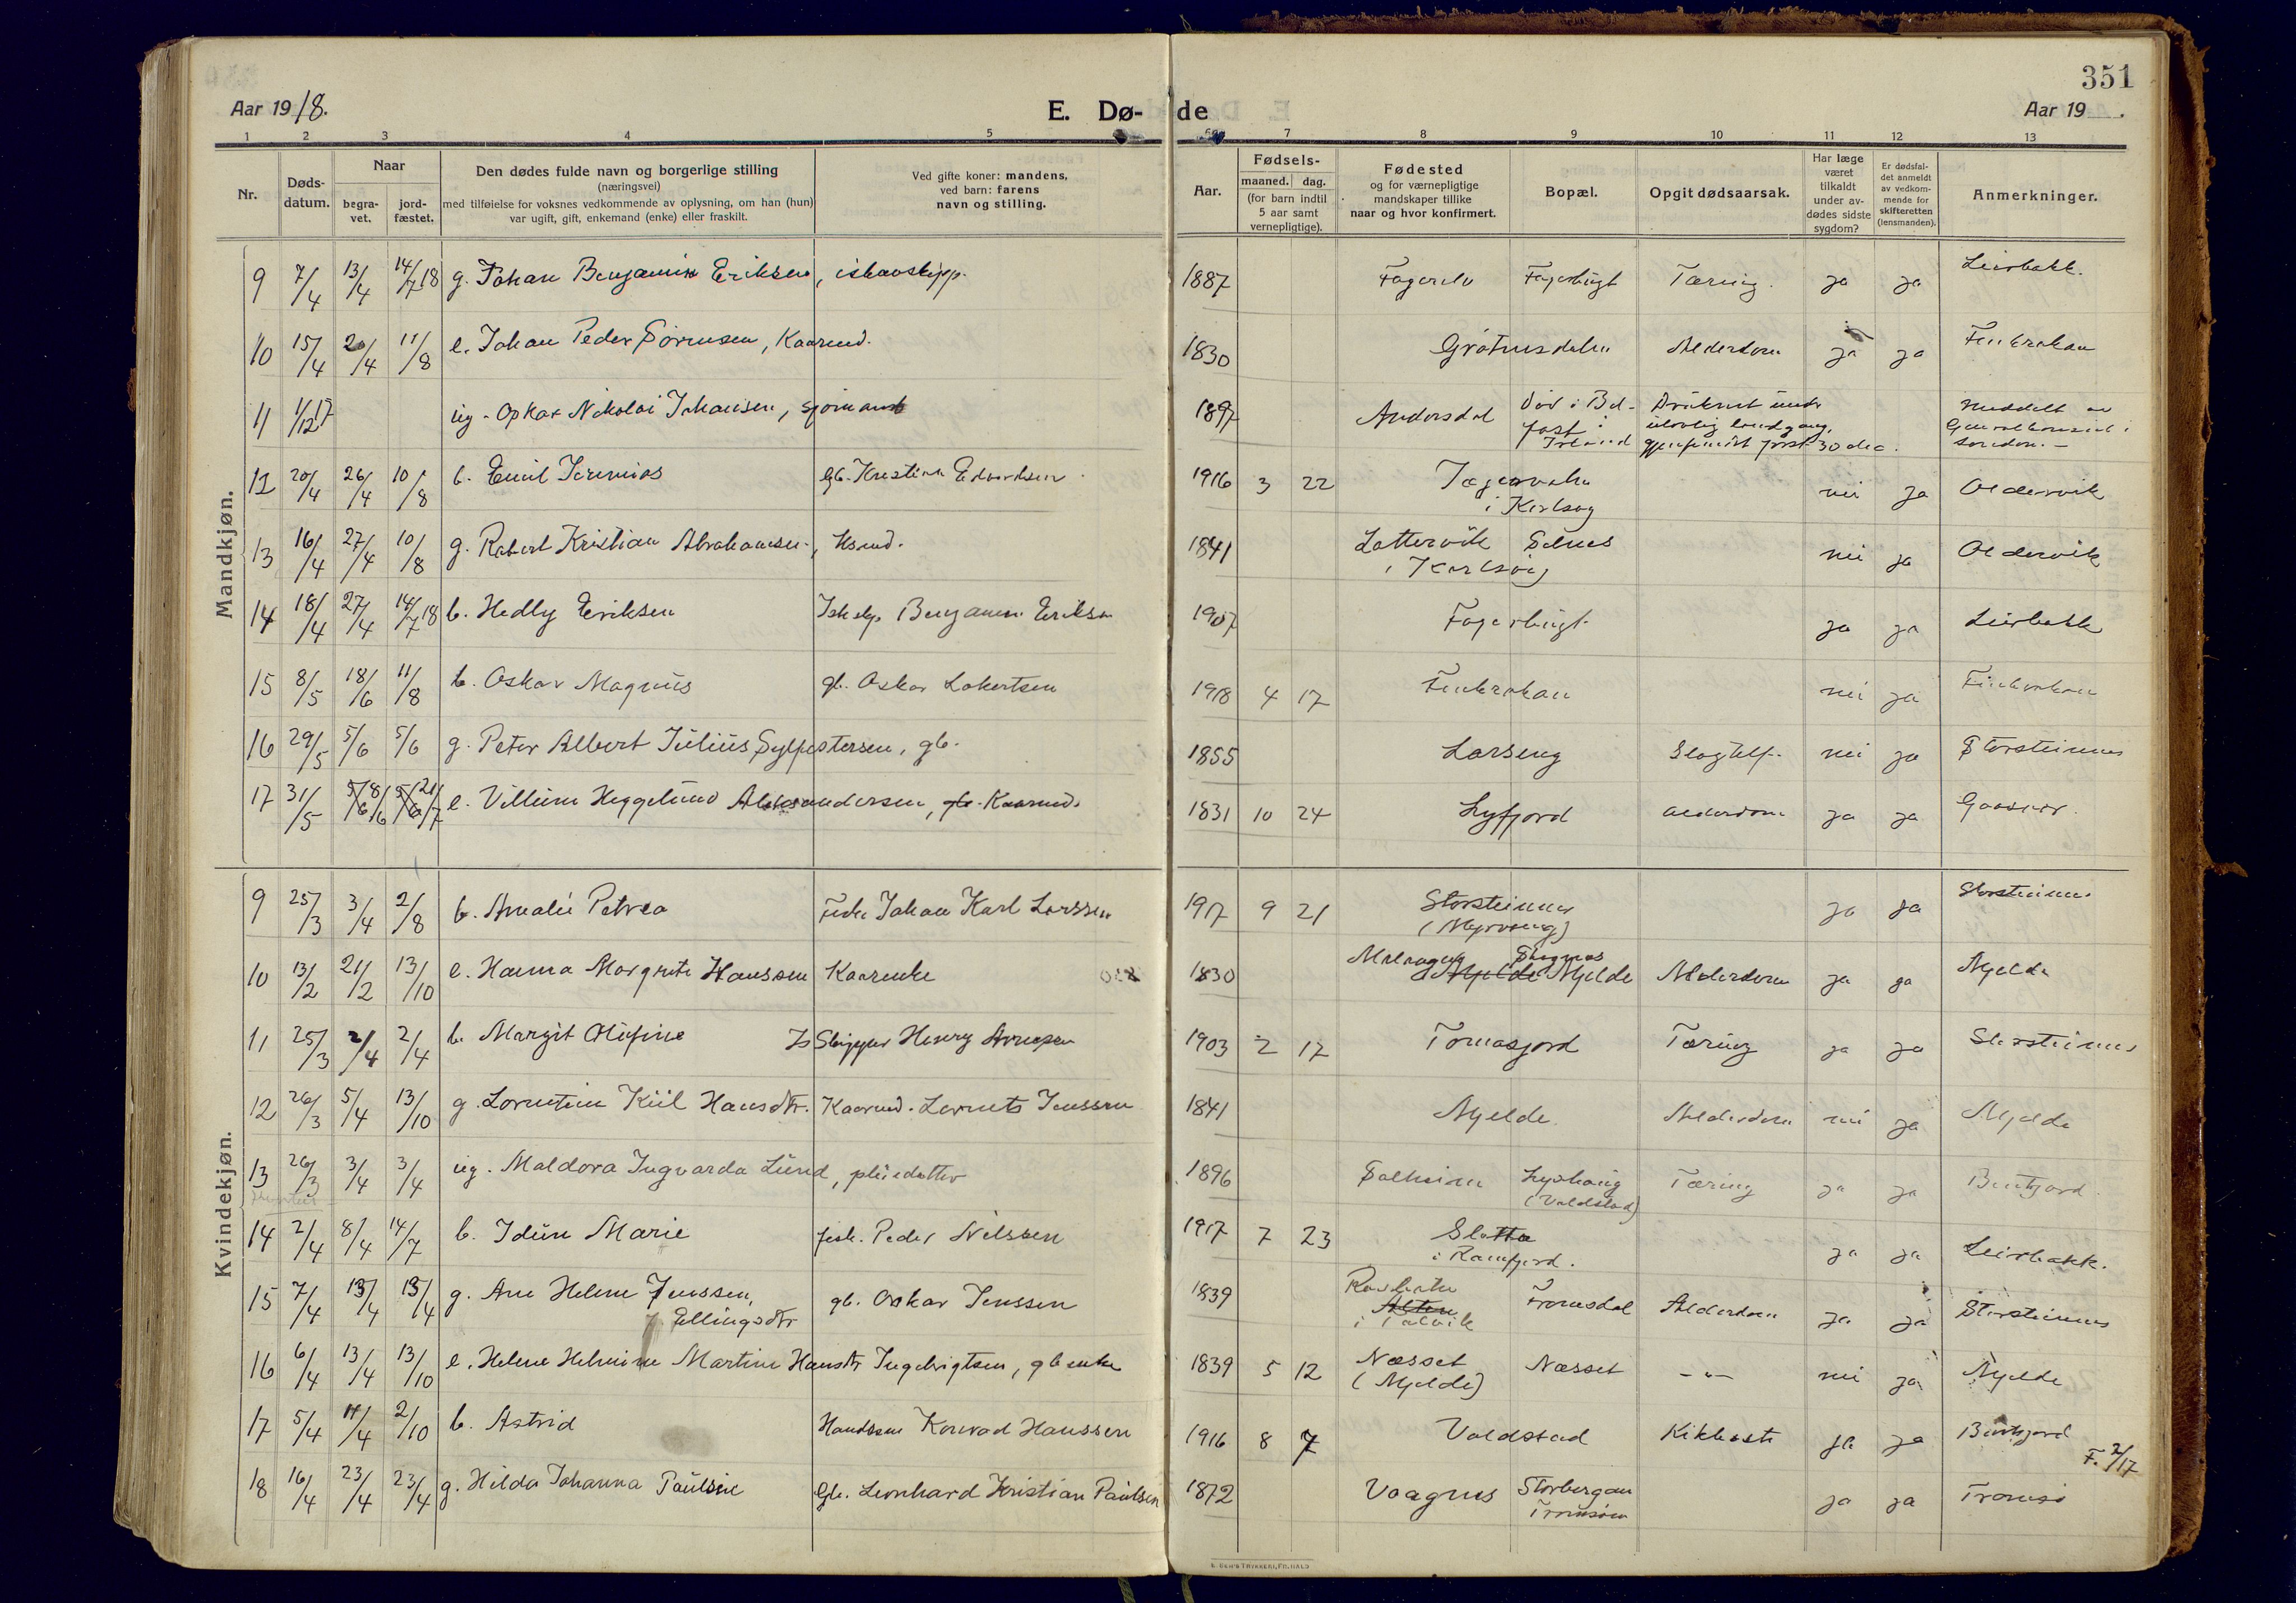 351
Aar 1918.
E. Dø- de
Aar 19 .
1 2 3 4 5 6 7 8 9 10 11 12 13
Nr.
Døds-datum.
Naar
begra-vet.
jord-fæstet.
Den dødes fulde navn og borgerlige stilling
(næringsvei)
med tilføielse for voksnes vedkommende av oplysning, om han (hun)
var ugift, gift, enkemand (enke) eller fraskilt.
Ved gifte koner: mandens,
ved barn: farens
navn og stilling.
Aar.
Fødsels-
maaned. dag.
(for barn indtil
5 aar samt
vernepligtige).
Fødested
og for værnepligtige
mandskaper tillike
naar og hvor konfirmert.
Bopæl.
Opgit dødsaarsak.
Har læge
været
tilkaldt
under av-
dødes sidste
sygdom?
Er dødsfal-
det anmeldt
av vedkom-
mende for
skifteretten
(lensmanden).
Anmerkninger.
Mandkjøn.
9 7/4 13/4 14/7 18 g. Johan Benjamin Eriksen, ishavsskipp. 1887 Fagerelv Fagerbugt Tæring. ja ja Leirbakk.
10 15/4 20/4 11/8 e. Johan Peder Sørensen, Kaarmd. 1830 Grøtnesdalen Alderdom ja ja Finkroken
11 1/12 17 ug. Oskar Nikolai Johansen, sjømand 1897 Andersdal Død i Bel-fast i Irland Druknet under ulovlig landgang, gjenfundet først 30 dec. Meddelt av Generalkonsulat i London.
12 20/4 26/4 10/8 b. Emil Jeremias Gb. Kristian Edvardsen 1916 3 22 Jægervatn i Karlsøy nei ja Oldervik
13 16/4 27/4 10/8 g. Robert Kristian Abrahamsen, Hsmd. 1841 Lattervik i Karlsøy Selnes nei ja Oldervik
14 18/4 27/4 14/7 18 b. Hedly Eriksen Ishskp Benjamin Eriksen 1907 Fagerbugt ja ja Leirbakk
15 8/5 18/6 11/8 b. Oskar Magnus gb. Oskar Lokertsen 1918 4 17 Finkroken nei ja Finkroken
16 29/5 5/6 5/6 g. Peter Albert Julius Sylfestersen, gb. 1855 Larseng Slagtilf. nei ja Storsteinnes
17 31/5 5/6 8/6 5/6 21/7 e. Villum Heggelund Aleksandersen, gb. Kaarmd. 1831 10 24 Lyfjord Alderdom ja ja Gaasvær.
Kvindekjøn.
9 25/3 3/4 2/8 b. Amalie Petrea Fisker Johan Karl Larssen 1917 9 21 Storsteinnes (Myrvang) ja ja Storsteinnes
10 13/2 21/2 13/10 e. Hanna Margrete Hanssen Kaarenke 1830 Malangen Mjelde Mjelde Alderdom ja ja Mjelde
11 25/3 2/4 2/4 b. Margit Olufine Is Skipper Henry Arnesen 1903 2 17 Tomasjord Tæring ja ja Storsteinnes
12 26/3 5/4 13/10 g. Lorentine Kiil Hansdtr. Kaarmd. Lorents Jenssen 1841 Mjelde Alderdom nei ja Mjelde
13 26/3 3/4 3/4 ug. Maldora Ingvarda Lund, pleiedatter 1896 Solheim Lyshaug (Voldstad) Tæring ja ja Bentsjord
14 2/4 8/4 14/7 b. Idun Marie fisk. Peder Nilssen 1917 7 23 Sletta i Ramfjord. ja ja Leirbakk.
15 7/4 13/4 13/4 g. Ane Helene Jenssen, f. Ellingsdtr gb. Oskar Jenssen 1839 Alten i Talvik Tromsdal Alderdom ja ja Storsteinnes
16 6/4 13/4 13/10 e. Helene Helmine Martine Hansdtr Ingebrigtsen, gbenke 1839 5 12 Næsset (Mjelde) Næsset -"- nei ja Mjelde
17 5/4 11/4 2/10 b. Astrid Handsem Konrad Hanssen 1916 8 7 Voldstad Kikhoste ja ja Bentsjord F. 2/17
18 16/4 23/4 23/4 g. Hilda Johanna Paulsen Gb. Leonhard Kristian Paulsen 1872 Vaagnes Storbergan Tromsøen ja ja Tromsø